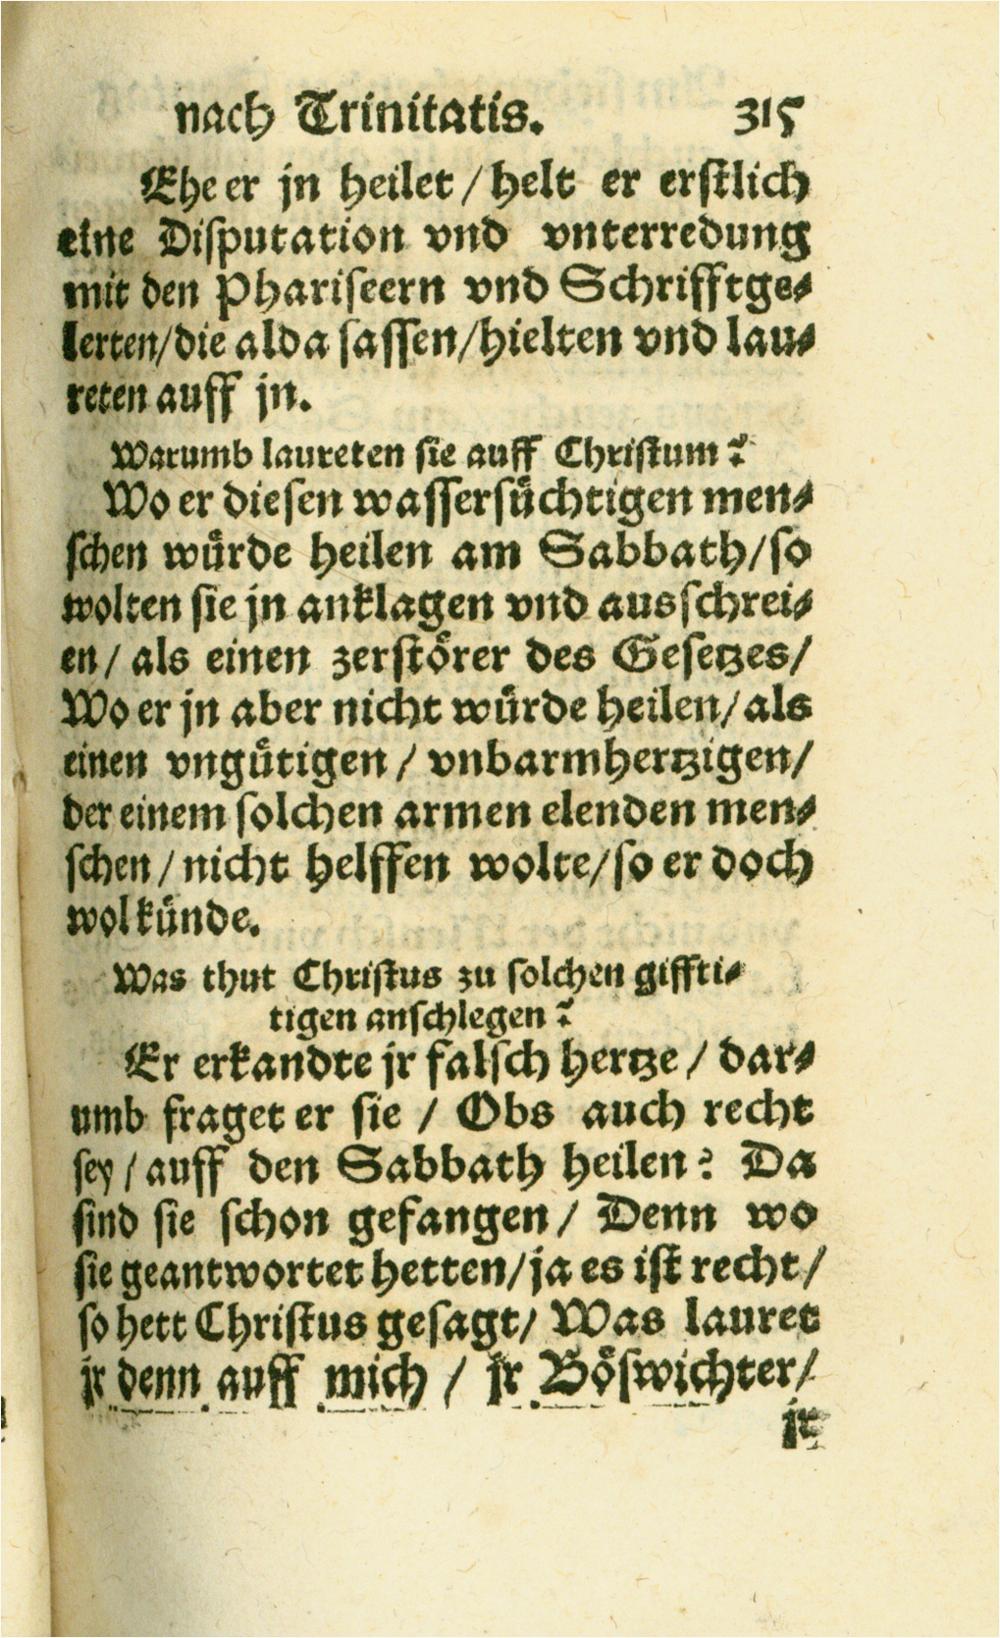 nach Trinitatis. 315
Ehe er jn heilet / helt er erstlich
eine Disputation vnd vnterredung
mit den Phariseern vnd Schrifftge⸗
lerten/die alda sassen/hielten vnd lau⸗
reten auff jn.
Warumb laureten sie auff Christum?
Wo er diesen wassersuͤchtigen men⸗
schen wuͤrde heilen am Sabbath/so
wolten sie jn anklagen vnd ausschrei⸗
en/ als einen zerstoͤrer des Gesetzes/
Wo er jn aber nicht wuͤrde heilen/als
einen vnguͤtigen / vnbarmhertzigen/
der einem solchen armen elenden men⸗
schen / nicht helffen wolte/so er doch
wol kuͤnde.
Was thut Christus zu solchen giffti⸗
tigen anschlegen?
Er erkandte jr falsch hertze / dar⸗
umb fraget er sie / Obs auch recht
sey / auff den Sabbath heilen? Da
sind sie schon gefangen / Denn wo
sie geantwortet hetten/ja es ist recht/
so hett Christus gesagt/ Was lauret
jr denn auff mich / jr Boͤswichter/
jr